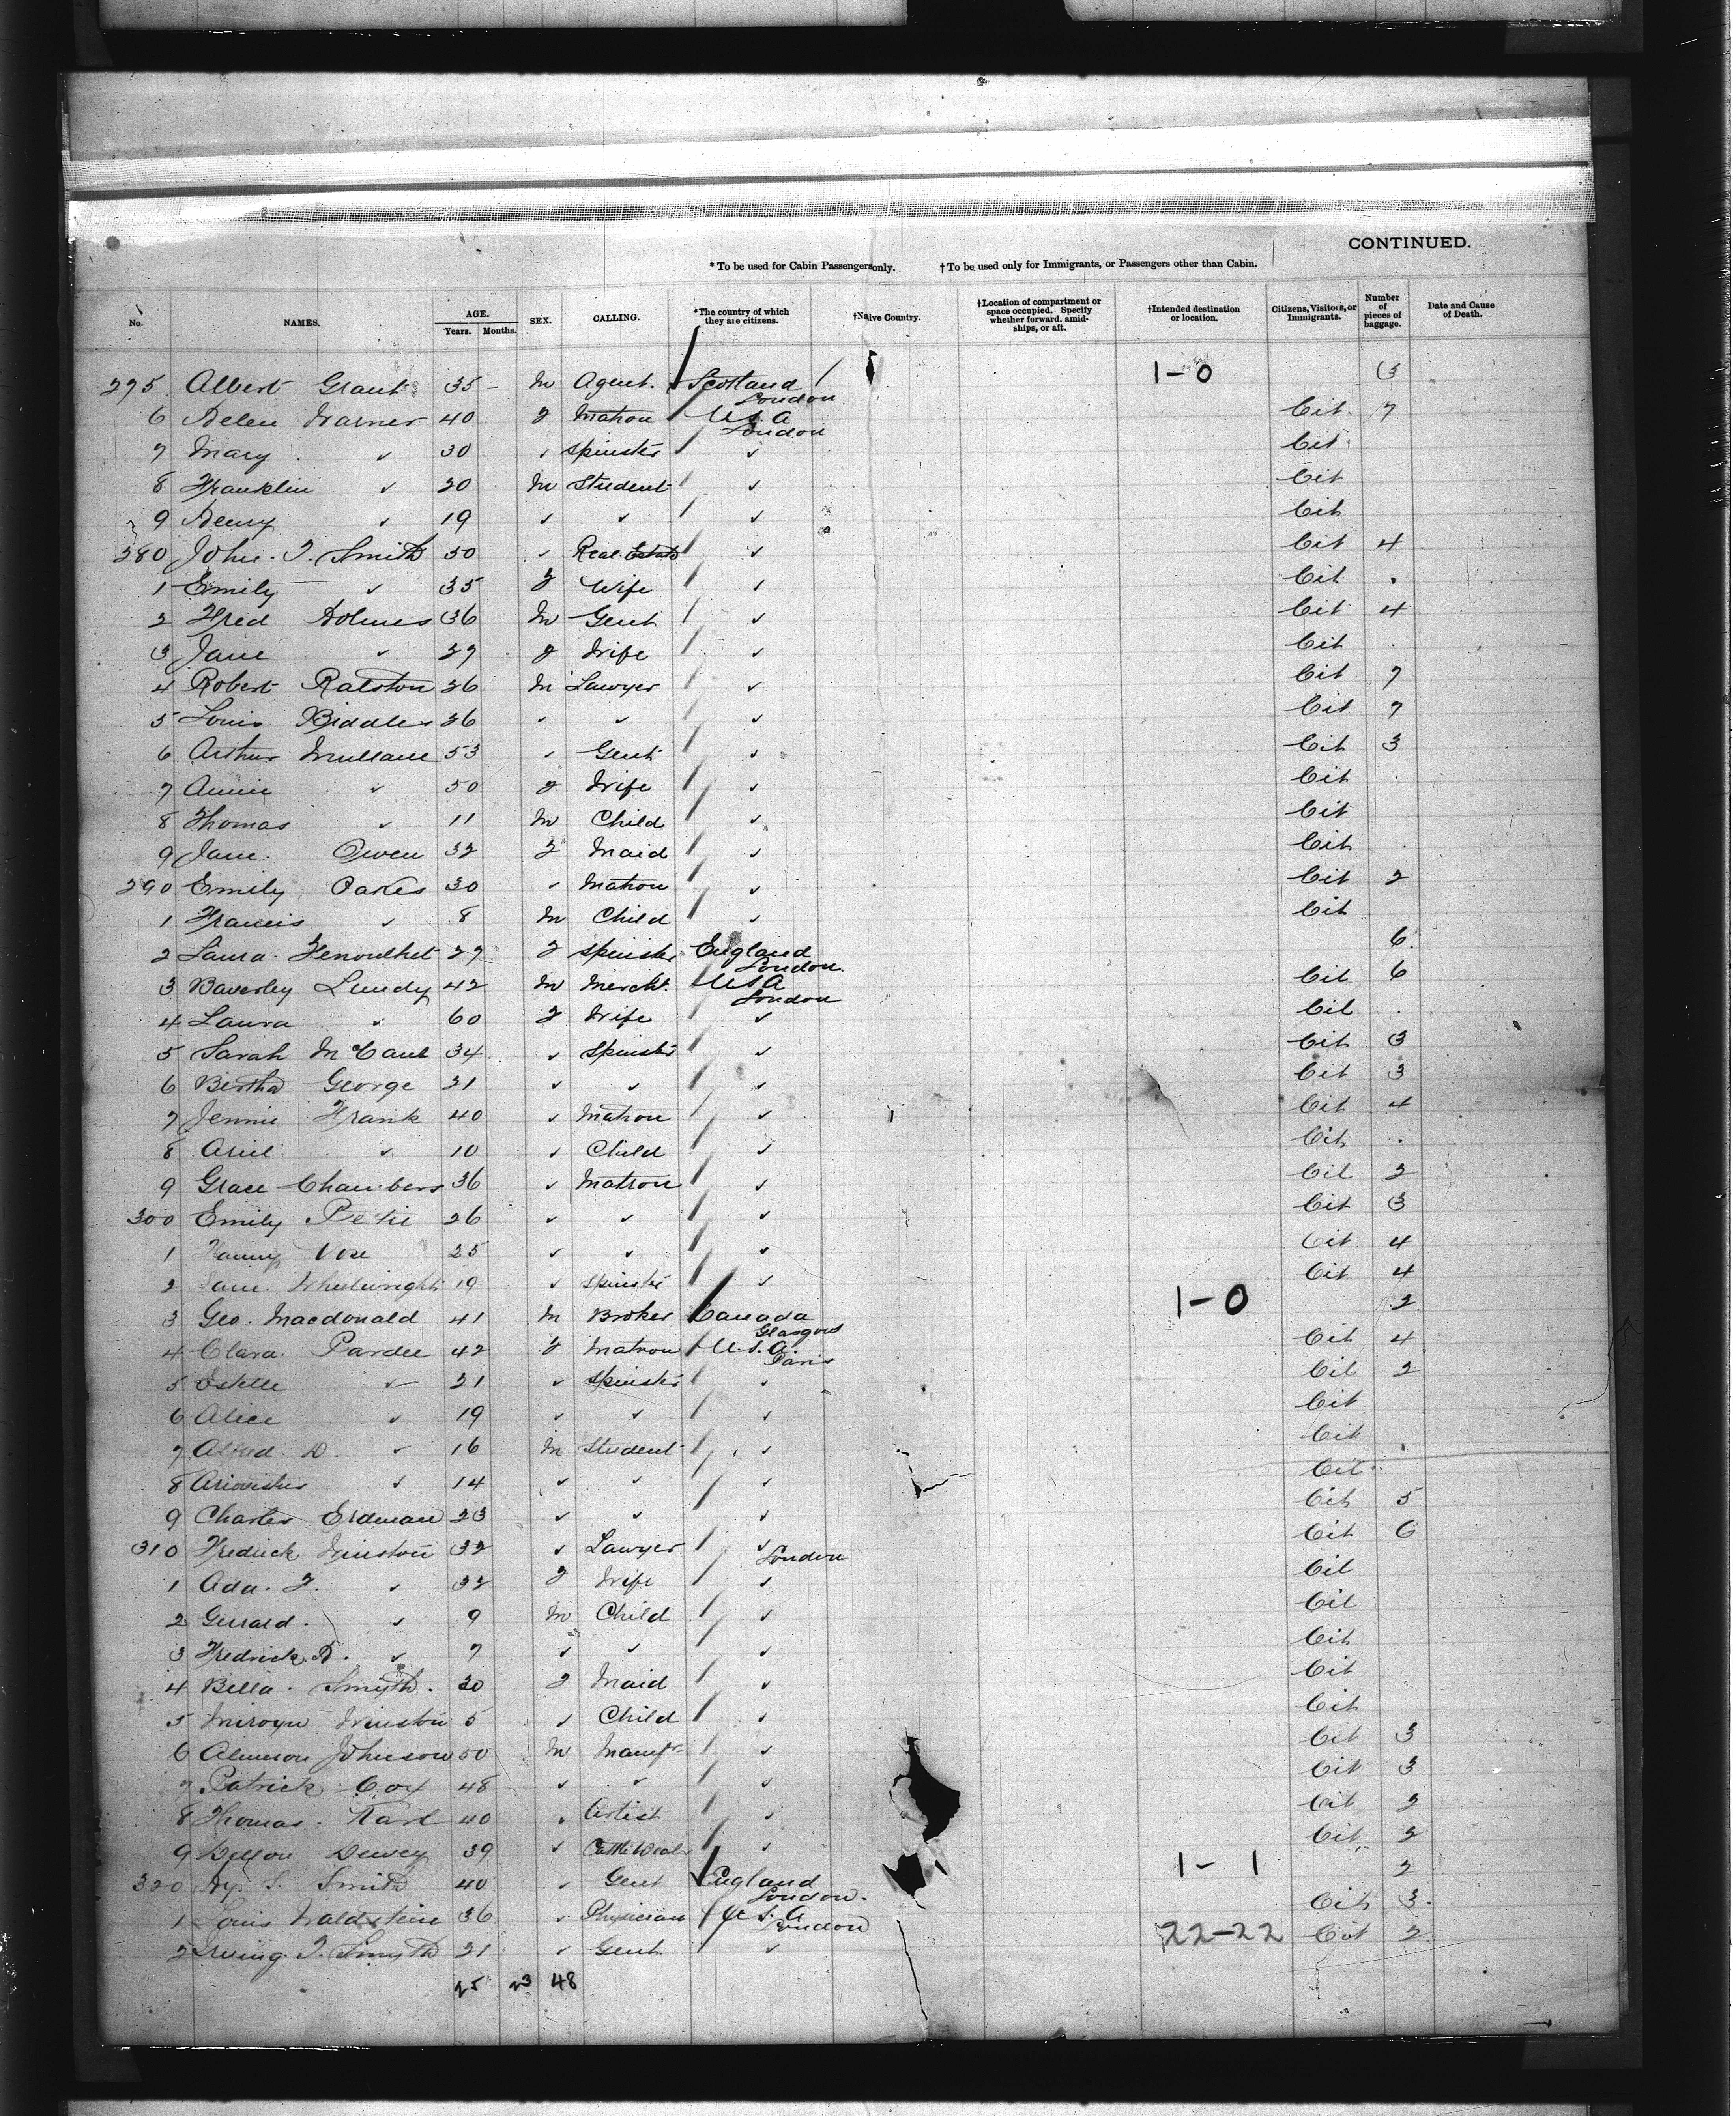 CONTINUED.
* To be used for Cabin Passengers only. † To be used only for Immigrants, or Passengers other than Cabin.
No. NAMES. AGE. Years. Months. SEX. CALLING. *The country of which they are citizens. †Native Country. †Location of compartment or space occupied. Specify whether forward, amidships, or aft. †Intended destination or location. Citizens, Visitors, or Immigrants. Number of pieces of baggage. Date and Cause of Death.
275 Albert Grant 35 M Agent. Scotland London 1-0 3
6 Helen Warner 40 F Matron U.S.A London Cit. 7
7 Mary ✓ 30 ✓ Spinster ✓ Cit
8 Franklin ✓ 20 M Student ✓ Cit
9 Henry ✓ 19 ✓ ✓ ✓ Cit
280 John. T. Smith 50 ✓ Real Estate ✓ Cit 4
1 Emily ✓ 35 F Wife ✓ Cit .
2 Fred Holmes 36 M Gent ✓ Cit 4
3 Jane ✓ 27 F Wife ✓ Cit .
4 Robert Ralston 26 M Lawyer ✓ Cit 7
5 Louis Biddle 26 ✓ ✓ ✓ Cit 7
6 Arthur Mullane 53 ✓ Gent ✓ Cit 3
7 Annie ✓ 50 F Wife ✓ Cit .
8 Thomas ✓ 11 M Child ✓ Cit
9 Jane. Owen 32 F Maid ✓ Cit .
290 Emily Oakes 30 ✓ Matron ✓ Cit 2
1 Francis ✓ 8 M Child ✓ Cit
2 Laura 27 F Spinster England London 6
3 Baverley Lundy 42 M Mercht. USA London Cit 6
4 Laura ✓ 60 F Wife ✓ Cit .
5 Sarah McCaul 34 ✓ Spinster ✓ Cit 3
6 Bertha George 21 ✓ ✓ ✓ Cit 3
7 Jennie Frank 40 ✓ Matron ✓ Cit 4
8 ✓ 10 ✓ Child ✓ Cit .
9 Grace Chambers 36 ✓ Matron ✓ Cit 2
300 Emily Petie 26 ✓ ✓ ✓ Cit 3
1 Fanny Vose 25 ✓ ✓ ✓ Cit 4
2 Jane. Wheelwright 19 ✓ Spinster ✓ Cit 4
3 Geo. Macdonald 41 M Broker Canada Glasgow 1-0 2
4 Clara. Pardee 42 F Matron U.S.A. Paris Cit 4
5 Estelle ✓ 21 ✓ Spinster ✓ Cit 2
6 Alice ✓ 19 ✓ ✓ ✓ Cit
7 Alfred. D. ✓ 16 M Student ✓ Cit .
8 Ariovistus ✓ 14 ✓ ✓ ✓ Cit
9 Charles Erdman 23 ✓ ✓ ✓ Cit 5
310 Fredrick Winston 32 ✓ Lawyer ✓ London Cit 6
1 Ada. F. ✓ 32 F Wife ✓ Cit
2 Gerrald. ✓ 9 M Child ✓ Cit
3 Fredrick. ✓ 7 ✓ ✓ ✓ Cit
4 Bella. Smyth. 20 F Maid ✓ Cit
5 Winston 5 ✓ Child ✓ Cit
6 Almeron Johnson 50 M Manufr ✓ Cit 3
7 Patrick Cox 48 ✓ ✓ ✓ Cit 3
8 Thomas. Karl 40 ✓ Artist ✓ Cit 2
9 Dewey 39 ✓ Cattle Dealer ✓ Cit 2
320 Hy. S. Smith 40 ✓ Gent England London. 1-1 2
1 Louis Waldstein 36 ✓ Physician U.S.A London Cit 3.
2 Irving. T. Smyth 21 ✓ Gent ✓ 22-22 Cit 2
25 23 48